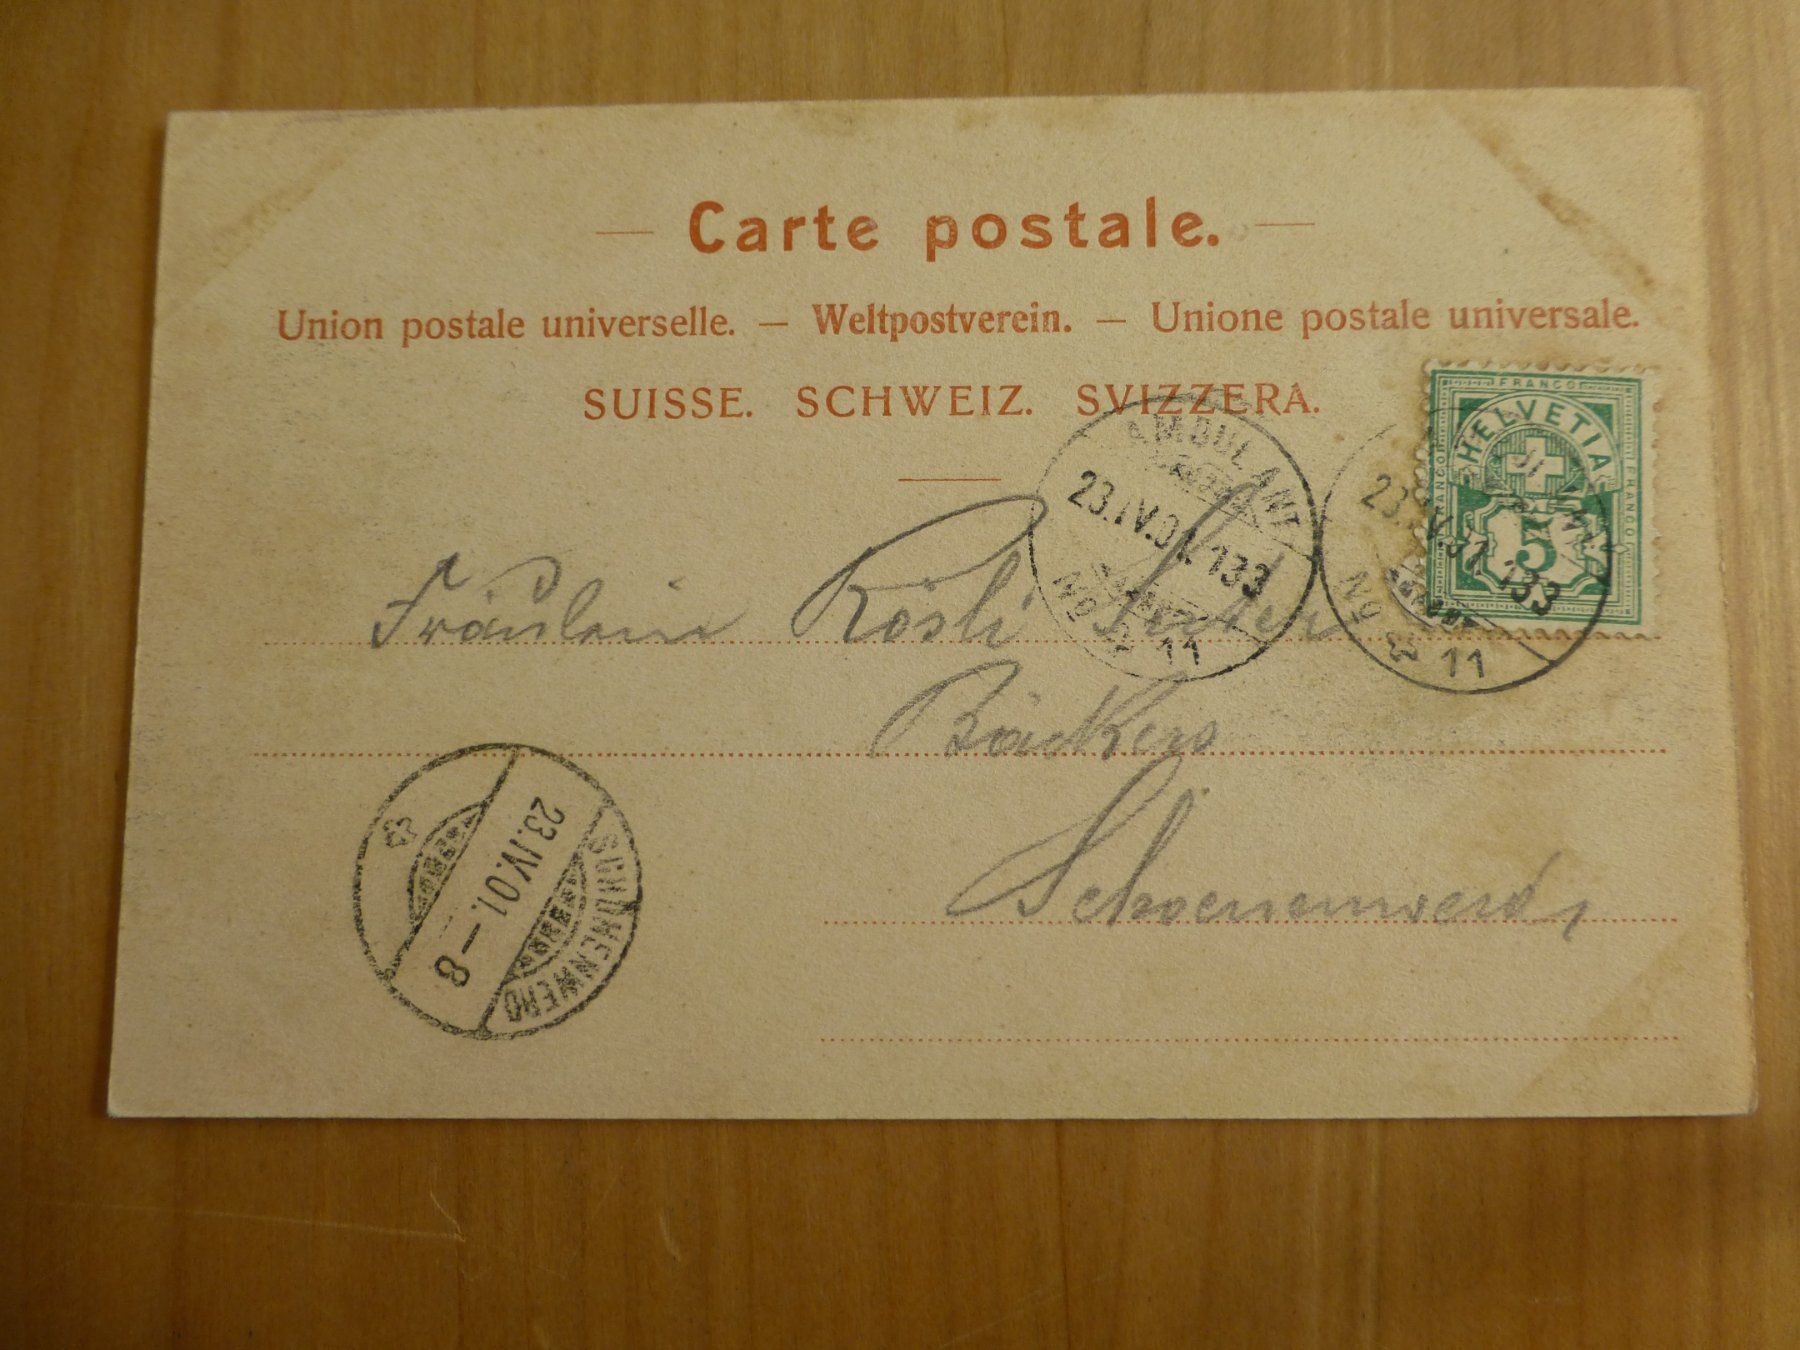 Carte postale.
Union postale universelle. — Weltpostverein. — Unione postale universale.
SUISSE. SCHWEIZ. SVIZZERA.
FRANCO
FRANCO
FRANCO
HELVETIA
5
AMBULANT
23.IV.01. 133
No 11
23.IV.01. 133
No 11
Fräulein Rösli Suter
Bäckers
Schoenenwerd,
SCHÖNENWERD
23.IV.01.–8